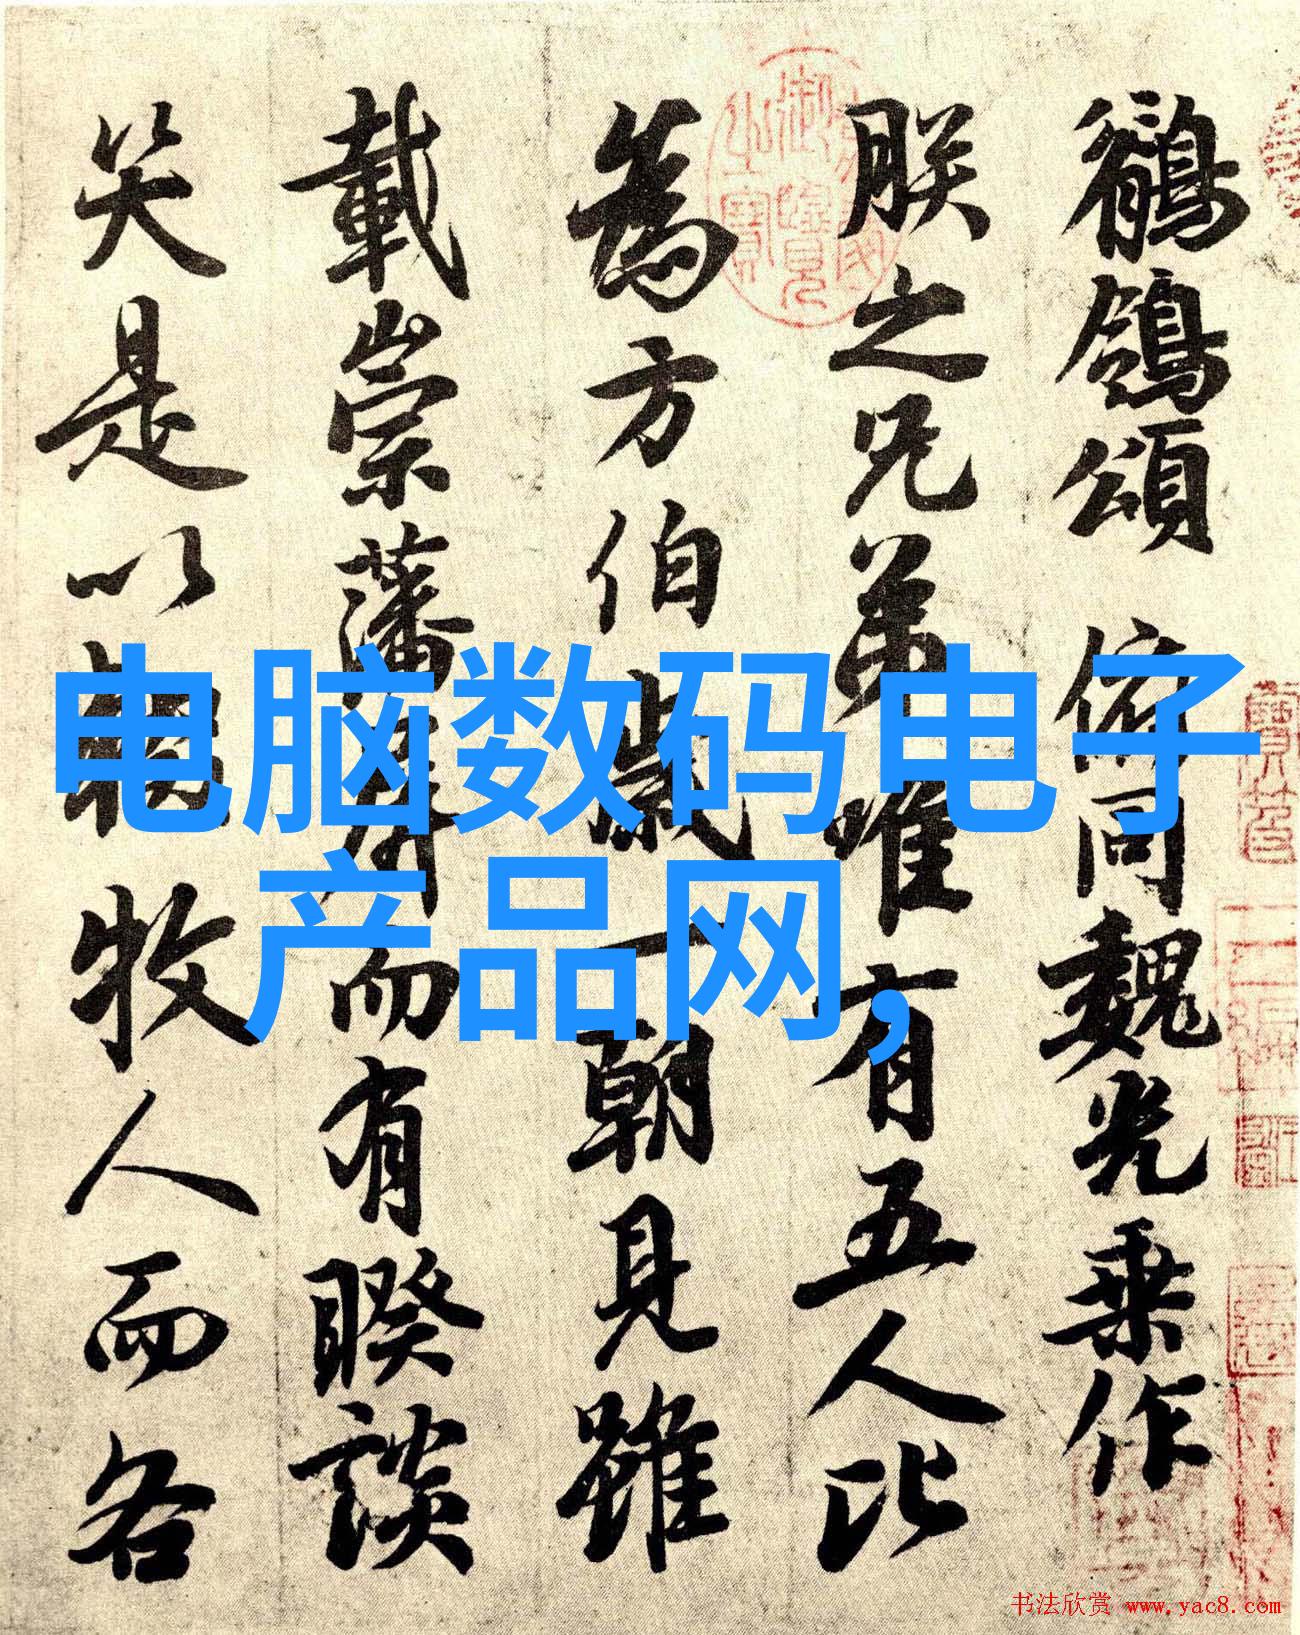 鶺鴒頌 俯同魏光乗作
朕之兄弟唯有五人比
為方伯歲一朝見雖
載崇藩屏而有睽談
笑是以輟牧人而各
电脑数码电子
产品网,
书法欣赏 www.yac8.com